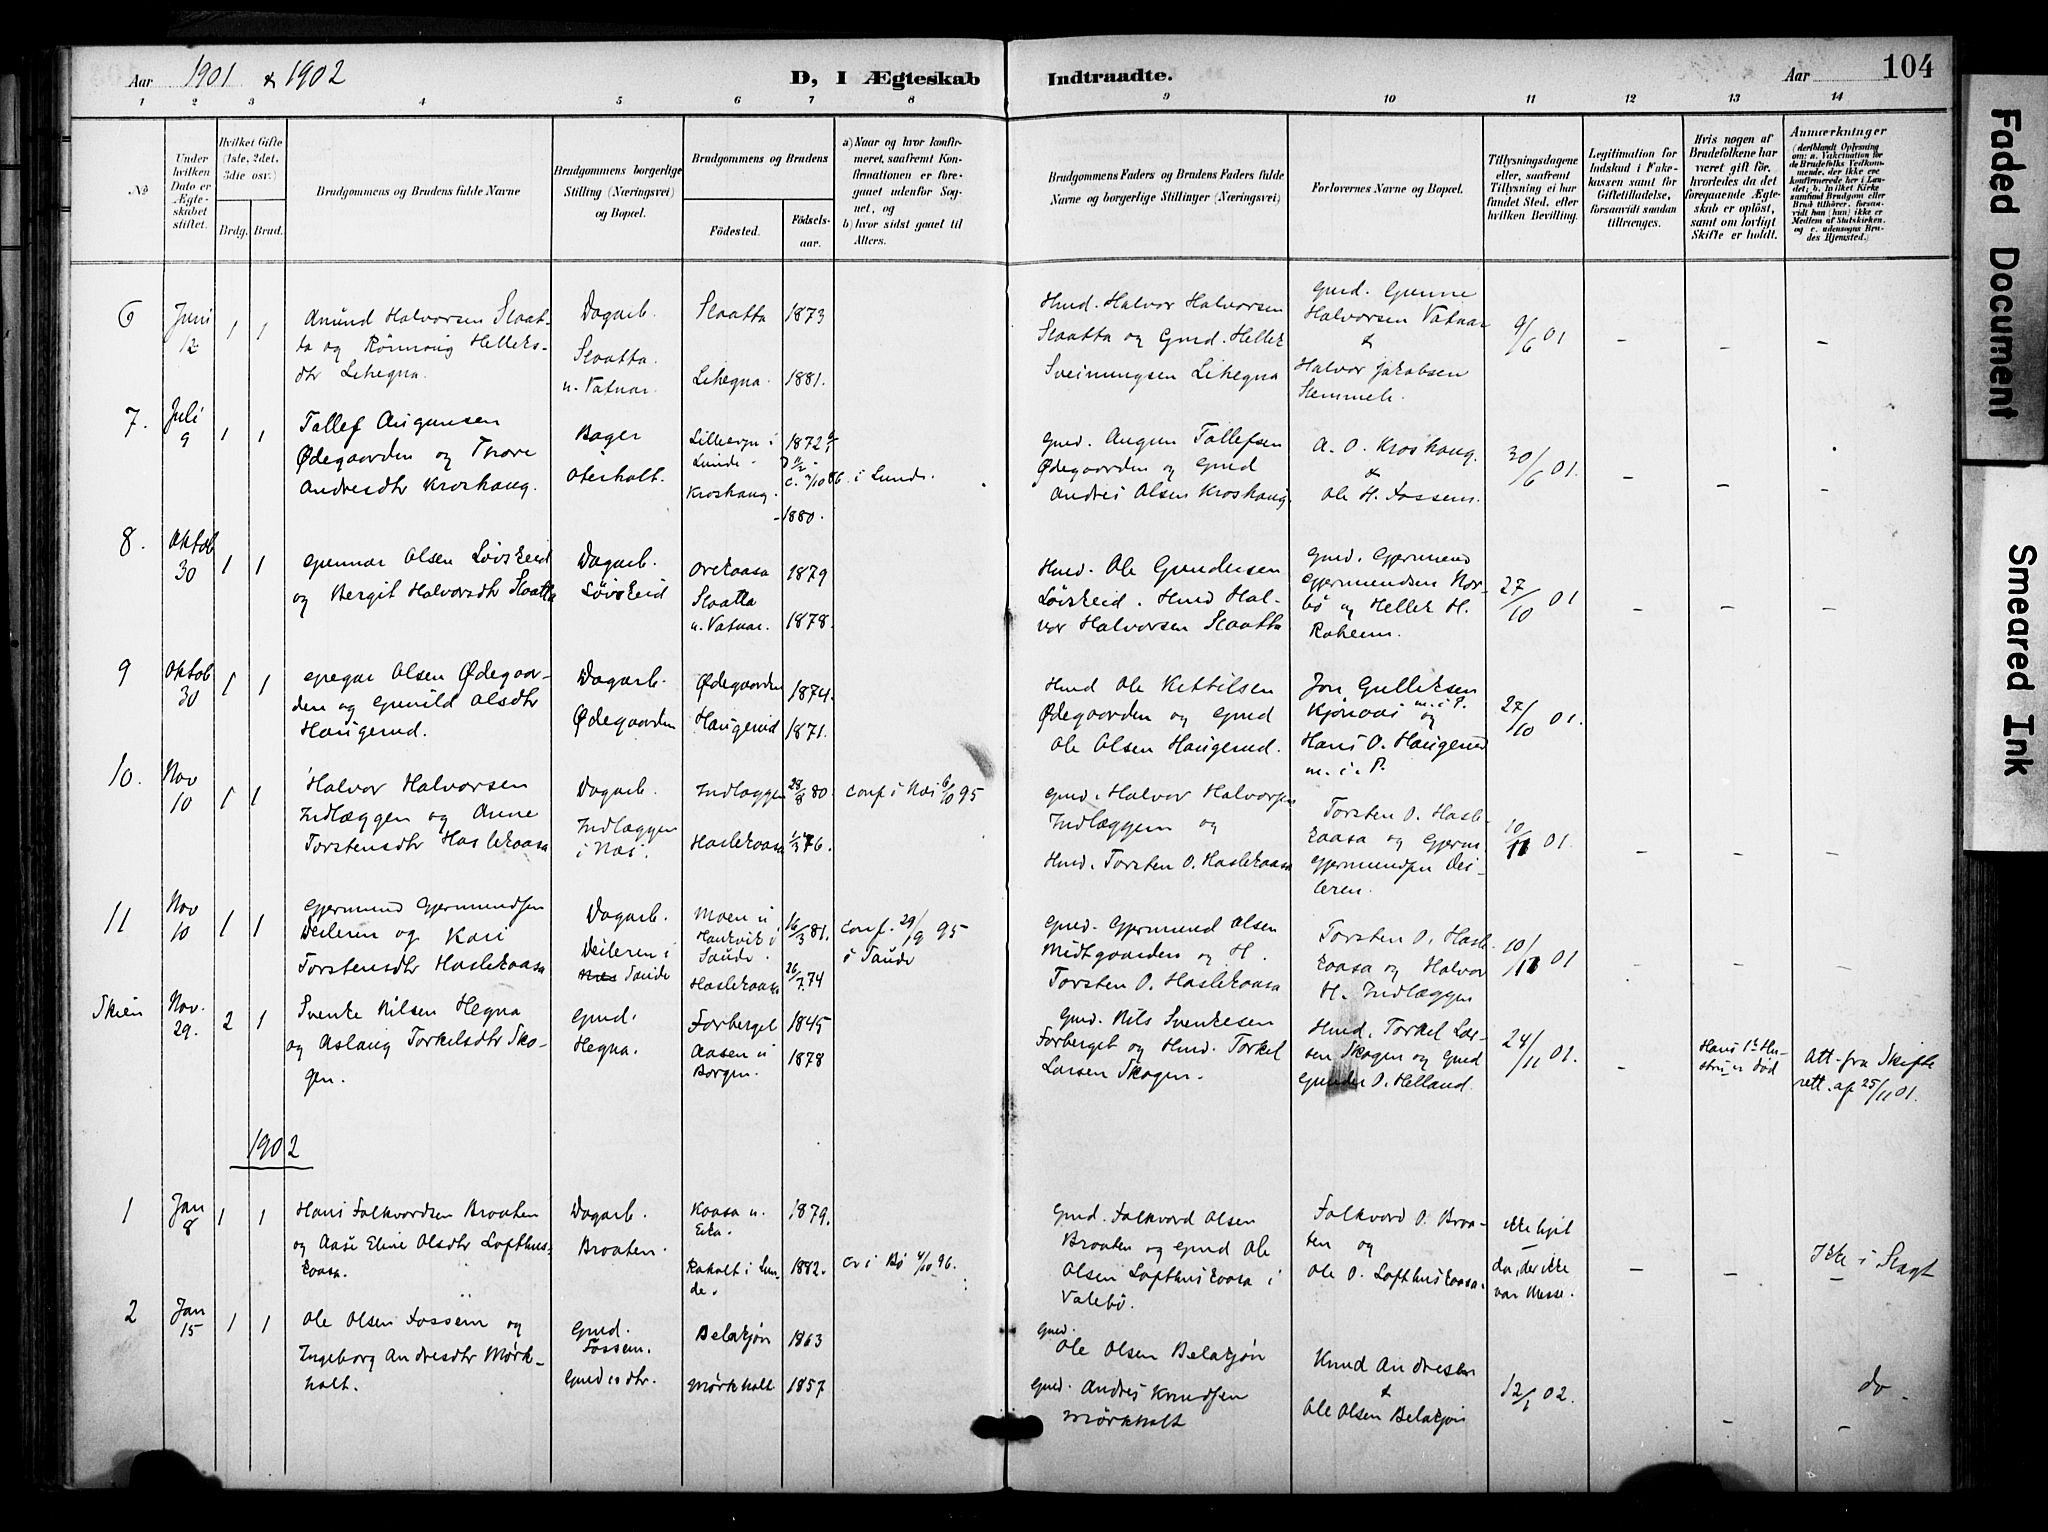 Aar 1901 & 1902
D, I Ægteskab Indtraadte.
Aar 104
1 2 3 4 5 6 7 8 9 10 11 12 13 14
No
Under hvilken Dato er Ægteskabet stiftet.
Hvilket Gifte (1ste, 2det, 3die osv.)
Brdg. Brud.
Brudgommens og Brudens fulde Navne
Brudgommens borgerlige Stilling (Næringsvei) og Bopæl.
Brudgommens og Brudens
Fødested.
Fødselsaar.
a) Naar og hvor konfirmeret, saafremt Konfirmationen er foregaaet udenfor Sognet, og
b) hvor sidst gaaet til Alters.
Brudgommens Faders og Brudens Faders fulde Navne og borgerlige Stillinger (Næringsvei)
Forlovernes Navne og Bopæl.
Tillysningsdagene eller, saafremt Tillysning ei har fundet Sted, efter hvilken Bevilling.
Legitimation for Indskud i Enkekassen samt for Giftetilladelse, forsaavidt saadan tiltrænges.
Hvis nogen af Brudefolkene har været gift før, hvorledes da det foregaaende Ægteskab er opløst, samt om lovligt Skifte er holdt.
Anmærkninger
Faded Document
Smeared Ink
6 Juni 12 1 1
Amund Halvorsen Slaatta og Rønnaug Helleksdtr Lihegna.
Dagarb. Slaatta u. Vatnar.
Slaatta 1873
Lihegna. 1881.
Hmd. Halvor Halvorsen Slaatta og Gmd. Hellek Sveinungsen Lihegna
Gmd. Gunne Halvorsen Vatnar & Halvor Jakobsen
9/6 01 – – –
7. Juli 9 1 1
Tallef Augunsen Ødegaarden og Thore Andresdtr Kroshaug.
Bager Oterholt.
Lunde – 1872
Kroshaug. –1880.
i Lunde.
Gmd. Augun Tallefsen Ødegaarden og Gmd Andres Olsen Kroshaug
A. O. Kroshaug. & Ole H. Fossem.
30/6 01. – – –
8. Oktob 30 1 1
Gunnar Olsen Løvskeid og Bergit Halvorsdtr Slaatta
Dagarb. Løvskeid
Orekaasa 1879
Slaatta u. Vatnar. 1878.
Hmd. Ole Gundersen Løvskeid. Hmd Halvor Halvorsen Slaatta
Gmd. Gjermund Gjermundsen Norbø og Hellek H. Roheim.
27/10 01 – – –
9 Oktob 30 1 1
Gregar Olsen Ødegaarden og Gunild Olsdtr Haugerud.
Dagarb. Ødegaarden
Ødegaarden 1874.
Haugerud 1871.
Hmd Ole Kettilsen Ødegaarden og Gmd Ole Olsen Haugerud.
Jon Gulleksen Kjonaas m. i P. og Hans O. Haugerud m. i. P.
27/10 01.
10. Nov 10 1 1
Halvor Halvorsen Indlæggen og Anne Torstensdtr Haslekaasa
Dagarb. Indlæggen i Næs.
Indlæggen 28/8 80 conf i Næs 6/10 95
Haslekaasa 1/3 76.
Gmd. Halvor Halvorsen Indlæggen og Hmd. Torsten O. Haslekaasa
Torsten O. Haslekaasa og Gjerm. Gjermundsen Deileren.
10/11 01. – – –
11 Nov 10 1 1
Gjermund Gjermundsen Deileren og Kari Torstensdtr Haslekaasa
Dagarb. Deileren i Saude
Moen u Haukvik i Saude. 16/3 81. conf. 29/9 95 i Saude
Haslekaasa 26/7 74
Gmd. Gjermund Olsen Midtgaarden og H. Torsten O. Haslekaasa
Torsten O. Haslekaasa og Halvor H. Indlæggen
10/11 01 – – –
Skien Nov. 29. 2 1
Svenke Nilsen Hegna og Aslaug Torkelsdtr Skogen.
Gmd. Hegna.
Forberget 1845
Aasen u Borgen. 1878
Gmd. Nils Svenkesen Forberget og Hmd. Torkel Larsen Skogen.
Hmd. Torkel Larsen Skogen og Gmd Gunder O. Helland.
24/11 01. –
Hans 1ste Hustru er død
Att. fra Skifterett. af 25/11 01.
1902
1 Jan 8 1 1
Hans Falkvordsen Braaten og Aase Eline Olsdtr Lofthuskaasa.
Dagarb. Braaten.
Kaasa u. Eika. 1879.
Roholt i Lunde. 1882. c i Bø 4/10 96.
Gmd. Falkvord Olsen Braaten og Gmd Ole Olsen Lofthuskaasa i Valebø.
Falkvord O. Braaten og Ole O. Lofthuskaasa.
ikke lyst da, der ikke var Messe. – –
Ikke i Slægt –
2 Jan 15 1 1
Ole Olsen Fossem og Ingeborg Andresdtr Mørkholt.
Gmd. Fossem. Gmdsdtr.
Belaskjøn 1863
Mørkholt 1857
Gmd. Ole Olsen Belaskjøn
Gmd. Andres Knudsen Mørkholt
Knud Andresen & Ole Olsen Belaskjøn
12/1 02. – do. –